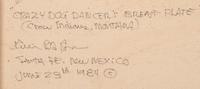 CRAZY DOG DANCER'S BREAST PLATE
(Crow Indians, MONTANA)
SANTA FE, NEW MEXICO
JUNE 25th 1984 ©